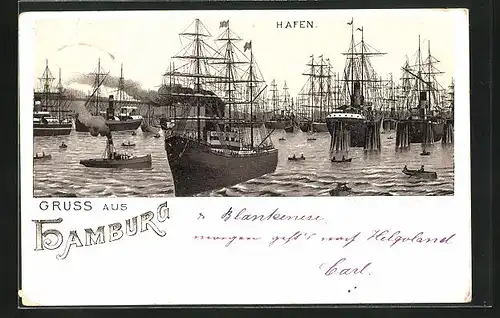 HAFEN.
GRUSS AUS
HAMBURG
Blankenese
morgen geht's nach Helgoland
Carl.